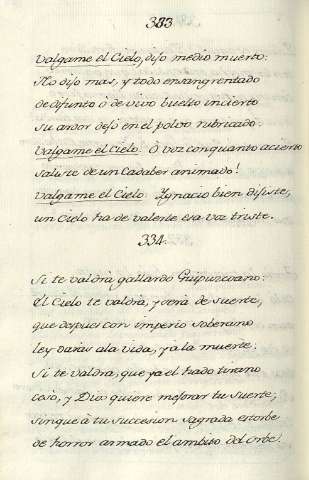 333
Valgame el Cielo, dijo medio muerto:
No dijo mas, y todo ensangrentado
de difunto ò de vivo buelto incierto
su ardor dejó en el polvo rubricado.
Valgame el Cielo. Ò voz con quanto acierto
saliste de un Cadaber animado!
Valgame el Cielo. Ignacio bien dijiste,
un Cielo ha de valerte esa voz triste.
334.
Si te valdrà gallardo Guipuzcoano:
El Cielo te valdrà, y serà de suerte,
que despues con imperio soberano
ley daràs a la vida, y à la muerte:
Si te valdra, que ya el hado tirano
cesò, y Dios quiere mejorar tu suerte,
sin que à tu succesion sagrada estorbe
de horror armado el ambito del orbe.